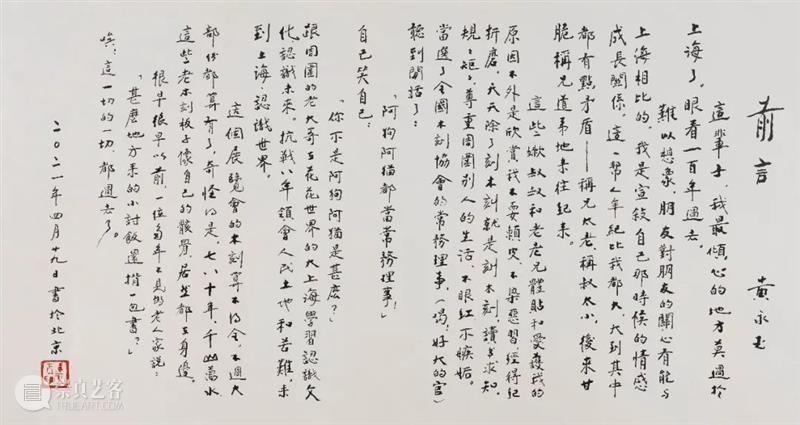 前言
黄永玉
這輩子，我最傾心的地方莫過於
上海了，眼看一百年過去。
難以想象，朋友對朋友的關心有能与
上海相比的。我是宣叙自己那時候的情感
成長關係，這一幫人年紀比我都大，大到其中
都有點矛盾——稱兄太老，稱叔太小，後來甘
脆稱兄道弟地來往起來。
這些嫩叔叔和老老兄體貼和愛護我的
原因不外是欣賞我不耍賴皮、不染惡習、經得起
折磨，天天除了刻木刻就是刻木刻，讀書求知，
規規矩矩，尊重周圍別人的生活，不眼紅不嫉妒。
當選了全國木刻協會的常務理事，（喝！好大的官）
聽到閒話了：
「阿狗阿猫都當常務理事！」
自己笑自己：
「你不是阿狗阿猫是甚麽？」
跟周圍的老大哥在花花世界的大上海學習認識文
化，認識未來。抗戰八年領會人民土地和苦難，來
到上海，認識世界。
這個展覽會的木刻算不得全，不過大
部份都算有了，奇怪的是，七八十年，千山萬水，
這些老木刻板子像自己的骸骨，居然都在身邊。
很早很早以前，一位多年不見的老人家説：
「甚麽地方來的小討飯還揹一包書？」
唉！這一切的一切，都過去了。
二〇二一年四月十九日書於北京
崇真艺客